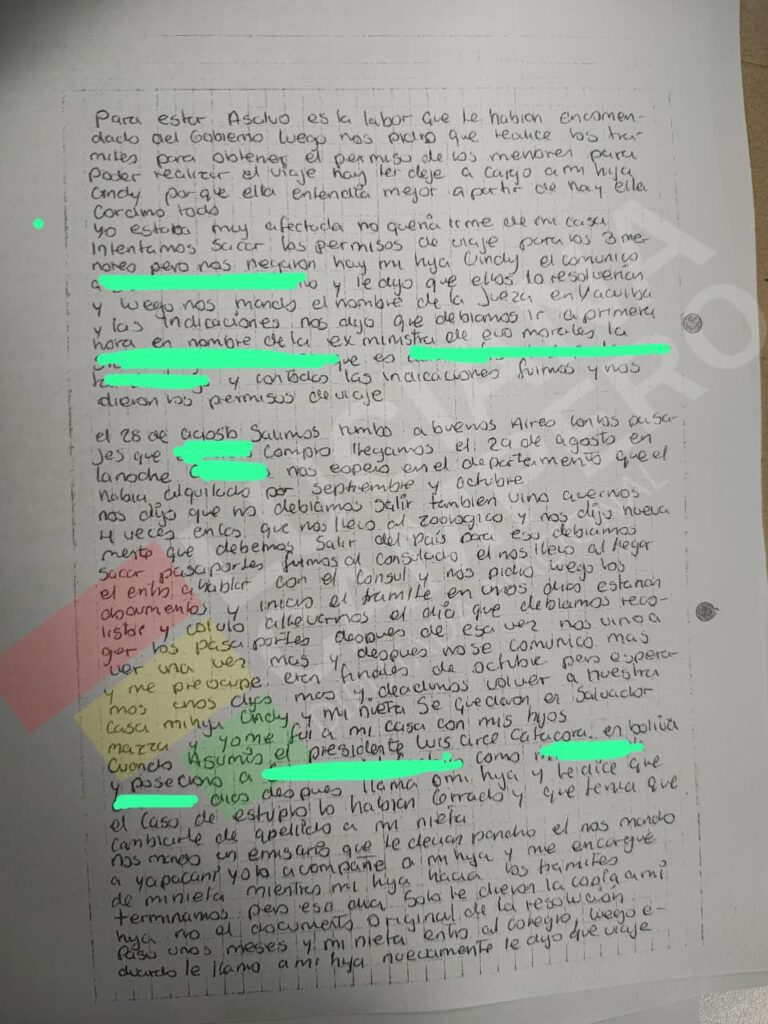 Para estar Asalvo es la labor que le habian encomen-
dado del Gobierno luego nos pidio que realice los tra-
mites para obtener el permiso de los menores para
poder realizar el viaje hay le deje a cargo a mi hija
Cindy porque ella entendia mejor a partir de hay ella
Cordino todo
yo estaba muy afectada no queria irme de mi casa
Intentamos sacar los permisos de viaje para los 3 me
nores pero nos negaron hay mi hija Cindy el comunico
a y le dijo que ellos lo resolverian
y luego nos mando el nombre de la Jueza en Yacuiba
y las indicaciones nos dijo que debiamos ir a primera
hora en nombre de la ex ministra de evo morales la
que es
y con todas las indicaciones fuimos y nos
dieron los permisos de viaje
el 28 de agosto Salimos rumbo a buenos Aires con los pasa-
Jes que compro llegamos el 29 de agosto en
la noche nos espero en el departamento que el
habia alquilado por septiembre y octubre
nos dijo que no debiamos salir tambien vino avernos
4 veces en las que nos llevo al zoologico y nos dijo nueva
mente que debemos salir del país para eso debiamos
sacar pasaportes fuimos al consulado el nos llevo al llegar
el entro a hablar con el consul y nos pidio luego los
documentos y inicio el tramite en unos dias estarian
listos y volvio allevarnos el dia que debiamos reco-
ger los pasaportes despues de esa vez nos vino a
ver una vez mas y despues no se comunico mas
y me preocupe eran finales de octubre pero espera-
mos unos dias mas y decidimos volver a nuestra
casa mi hija Cindy y mi nieta se quedaron en Salvador
mazza y yo me fui a mi casa con mis hijos
Cuando Asumio el presidente Luis arce catacora en bolivia
y poseciono a como
dias despues llama a mi hija y le dice que
el caso de estupro lo habian cerrado y que tenia que
canbiarle de apellido a mi nieta
nos mando un emisario que le decian poncho el nos mando
a yapacani yo la acompañe a mi hija y me encargue
de mi nieta mientras mi hija hacia los tramites
terminamos pero ese dia solo le dieron la copia a mi
hija no el documento original de la resolución
Paso unos meses y mi nieta entro al colegio, luego e-
duardo le llamo a mi hija nuevamente le dijo que viaje